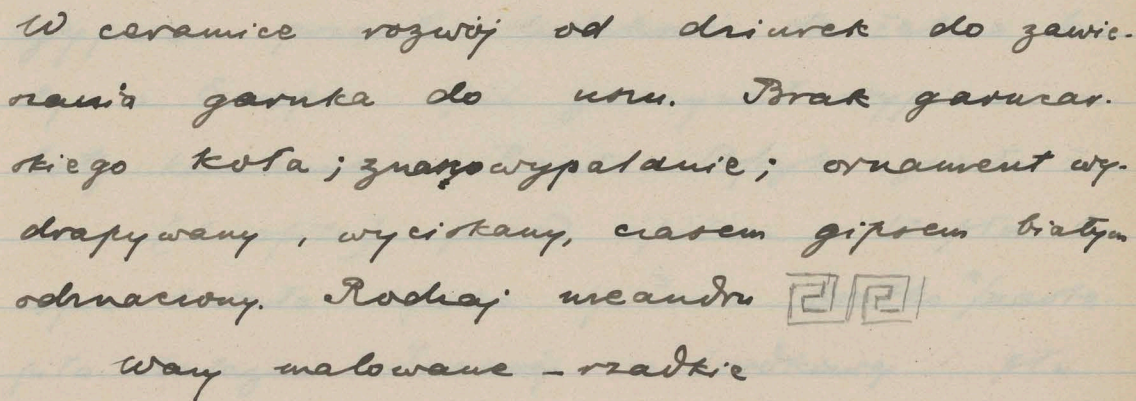 W ceramice rozwój od dziurek do zawie-
szania garnka do uszu. Brak garncar-
skiego koła; znano wypalanie; ornament wy-
drapywany, wyciskany, czasem gipsem białym
odznaczony. Rodzaj meandru
Wazy malowane – rzadkie